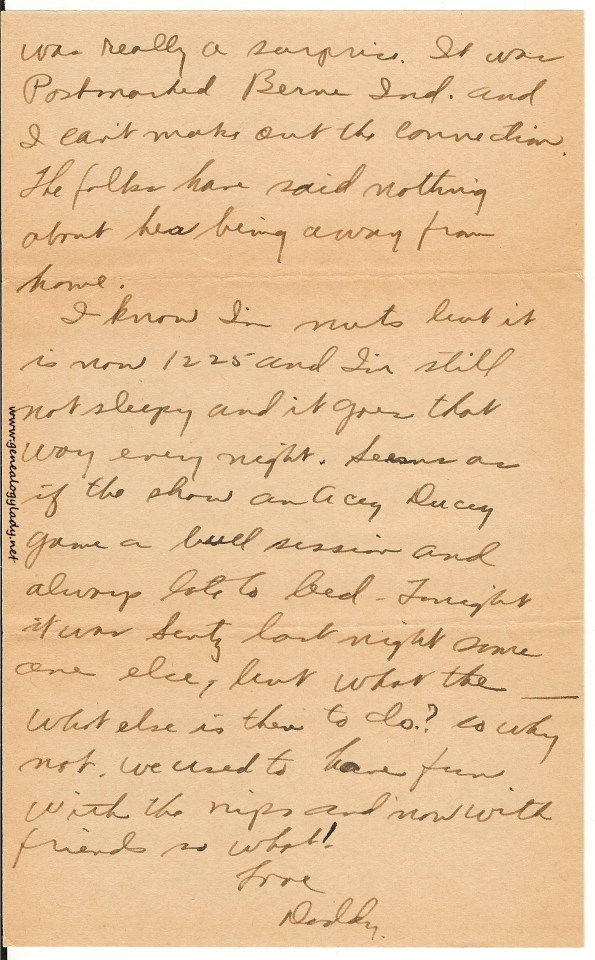 was really a surprise. It was
Postmarked Berne Ind. and
I can't make out the connection.
The folks have said nothing
about her being away from
home.
I know I'm nuts but it
is now 1225 and I'm still
not sleepy and it goes that
way every night. Seems as
if the show an Acey Ducey
game a bull session and
always late to bed - Tonight
it was Lentz last night some
one else, but what the ___
what else is there to do? so why
not. we used to have fun
with the nips and now with
friends so what!
Love
Daddy.
www.genealogylady.net